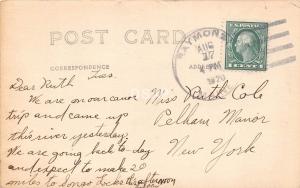 POST CARD
CORRESPONDENCE
ADDRESS
RAYMOND
AUG
17
4 PM
1920
1 CENT 1
Dear Ruth
We are on our canoe
trip and came up
this river yesterday.
We are going back to-day
and expect to make 20
miles to Songo Locks this afternoon
Miss Ruth Cole
Pelham Manor
New York